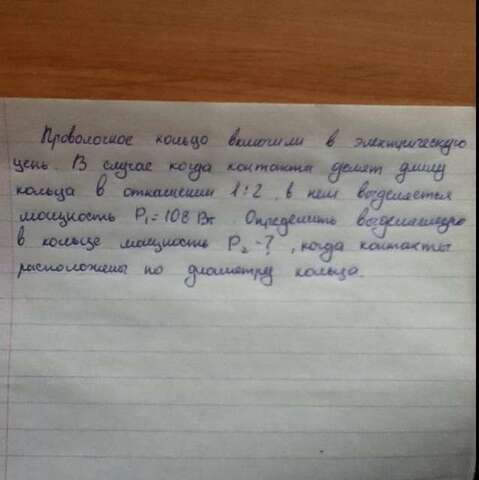 Проволочное кольцо включили в электрическую
цепь. В случае когда контакты делят длину
кольца в отнашении 1:2, в нем выделяется
мощность P₁=108 Вт. Определить выделяемую
в кольце мощность P₂-?, когда контакты
расположены по диаметру кольца.